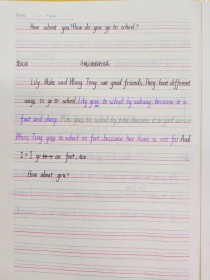 How about you? How do you go to school?
Lily, Mike and Wang Tong are good friends. They have different
ways to go to school. Lily goes to school by subway, because it is
fast and cheap. Mike goes to school by
Wang Tong goes to school on foot, because her home is not far. And
I? I go on foot, too.
How about you?